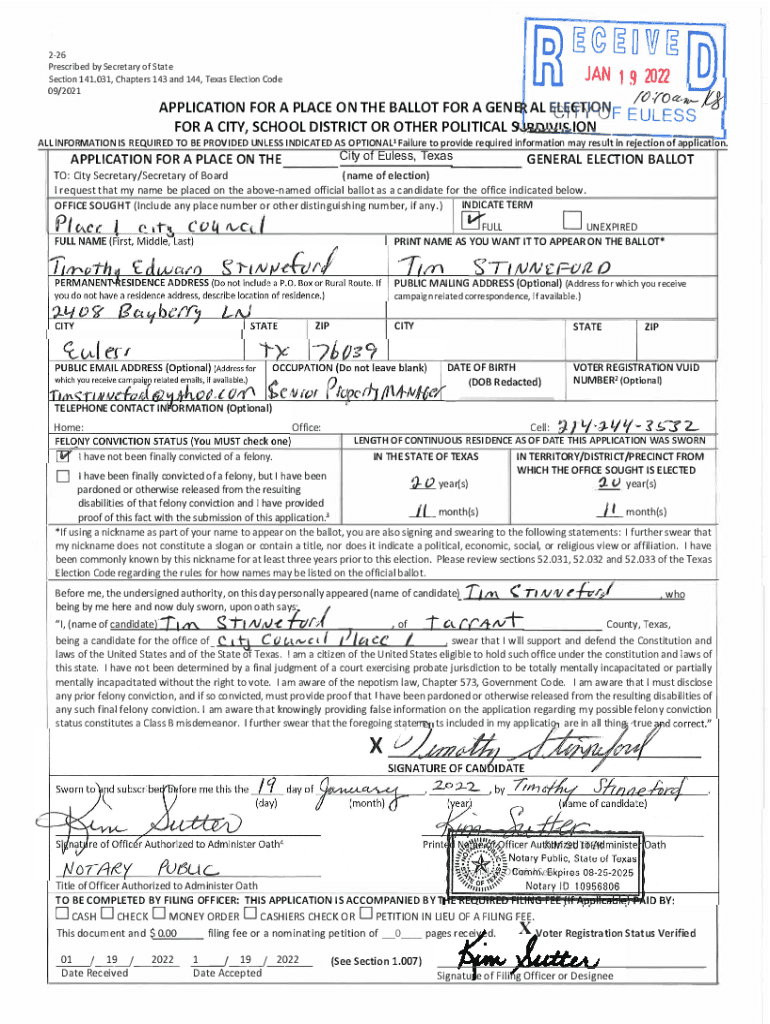 2-26
Prescribed by Secretary of State
Section 141.031, Chapters 143 and 144, Texas Election Code
09/2021
RECEIVED
JAN 19 2022
10:10am KS
CITY OF EULESS
APPLICATION FOR A PLACE ON THE BALLOT FOR A GENERAL ELECTION
FOR A CITY, SCHOOL DISTRICT OR OTHER POLITICAL SUBDIVISION
ALL INFORMATION IS REQUIRED TO BE PROVIDED UNLESS INDICATED AS OPTIONAL¹ Failure to provide required information may result in rejection of application.
APPLICATION FOR A PLACE ON THE City of Euless, Texas GENERAL ELECTION BALLOT
TO: City Secretary/Secretary of Board (name of election)
I request that my name be placed on the above-named official ballot as a candidate for the office indicated below.
OFFICE SOUGHT (Include any place number or other distinguishing number, if any.) INDICATE TERM
Place 1 city council FULL UNEXPIRED
FULL NAME (First, Middle, Last) PRINT NAME AS YOU WANT IT TO APPEAR ON THE BALLOT*
Timothy Edward STINNEford TIM STINNEFORD
PERMANENT RESIDENCE ADDRESS (Do not include a P.O. Box or Rural Route. If you do not have a residence address, describe location of residence.) PUBLIC MAILING ADDRESS (Optional) (Address for which you receive campaign related correspondence, if available.)
2408 Bayberry LN
CITY STATE ZIP CITY STATE ZIP
Euless TX 76039
PUBLIC EMAIL ADDRESS (Optional) (Address for which you receive campaign related emails, if available.) OCCUPATION (Do not leave blank) DATE OF BIRTH (DOB Redacted) VOTER REGISTRATION VUID NUMBER² (Optional)
TimSTINNEford@yahoo.com Senior Property MANAGER
TELEPHONE CONTACT INFORMATION (Optional)
Home: Office: Cell: 214-244-3532
FELONY CONVICTION STATUS (You MUST check one) LENGTH OF CONTINUOUS RESIDENCE AS OF DATE THIS APPLICATION WAS SWORN
I have not been finally convicted of a felony. IN THE STATE OF TEXAS IN TERRITORY/DISTRICT/PRECINCT FROM WHICH THE OFFICE SOUGHT IS ELECTED
I have been finally convicted of a felony, but I have been
pardoned or otherwise released from the resulting 20 year(s) 20 year(s)
disabilities of that felony conviction and I have provided
proof of this fact with the submission of this application.³ 11 month(s) 11 month(s)
*If using a nickname as part of your name to appear on the ballot, you are also signing and swearing to the following statements: I further swear that
my nickname does not constitute a slogan or contain a title, nor does it indicate a political, economic, social, or religious view or affiliation. I have
been commonly known by this nickname for at least three years prior to this election. Please review sections 52.031, 52.032 and 52.033 of the Texas
Election Code regarding the rules for how names may be listed on the official ballot.
Before me, the undersigned authority, on this day personally appeared (name of candidate) Tim STINNEford, who
being by me here and now duly sworn, upon oath says:
"I, (name of candidate) Tim STINNEford, of TARRANT County, Texas,
being a candidate for the office of City Council Place 1, swear that I will support and defend the Constitution and
laws of the United States and of the State of Texas. I am a citizen of the United States eligible to hold such office under the constitution and laws of
this state. I have not been determined by a final judgment of a court exercising probate jurisdiction to be totally mentally incapacitated or partially
mentally incapacitated without the right to vote. I am aware of the nepotism law, Chapter 573, Government Code. I am aware that I must disclose
any prior felony conviction, and if so convicted, must provide proof that I have been pardoned or otherwise released from the resulting disabilities of
any such final felony conviction. I am aware that knowingly providing false information on the application regarding my possible felony conviction
status constitutes a Class B misdemeanor. I further swear that the foregoing statements included in my application are in all things true and correct."
X Timothy Stinneford
SIGNATURE OF CANDIDATE
Sworn to and subscribed before me this the 19 day of January, 2022, by Timothy Stinneford.
(day) (month) (year) (name of candidate)
Kim Sutter Kim Sutter
Signature of Officer Authorized to Administer Oath⁴ Printed Name of Officer Authorized to Administer Oath
NOTARY PUBLIC
Notary Public, State of Texas
Comm. Expires 08-25-2025
Notary ID 10956806
Title of Officer Authorized to Administer Oath
TO BE COMPLETED BY FILING OFFICER: THIS APPLICATION IS ACCOMPANIED BY THE REQUIRED FILING FEE (If Applicable) PAID BY:
CASH CHECK MONEY ORDER CASHIERS CHECK OR PETITION IN LIEU OF A FILING FEE.
This document and $ 0.00 filing fee or a nominating petition of 0 pages received. X Voter Registration Status Verified
01 / 19 / 2022 1 / 19 / 2022 (See Section 1.007) Kim Sutter
Date Received Date Accepted Signature of Filing Officer or Designee